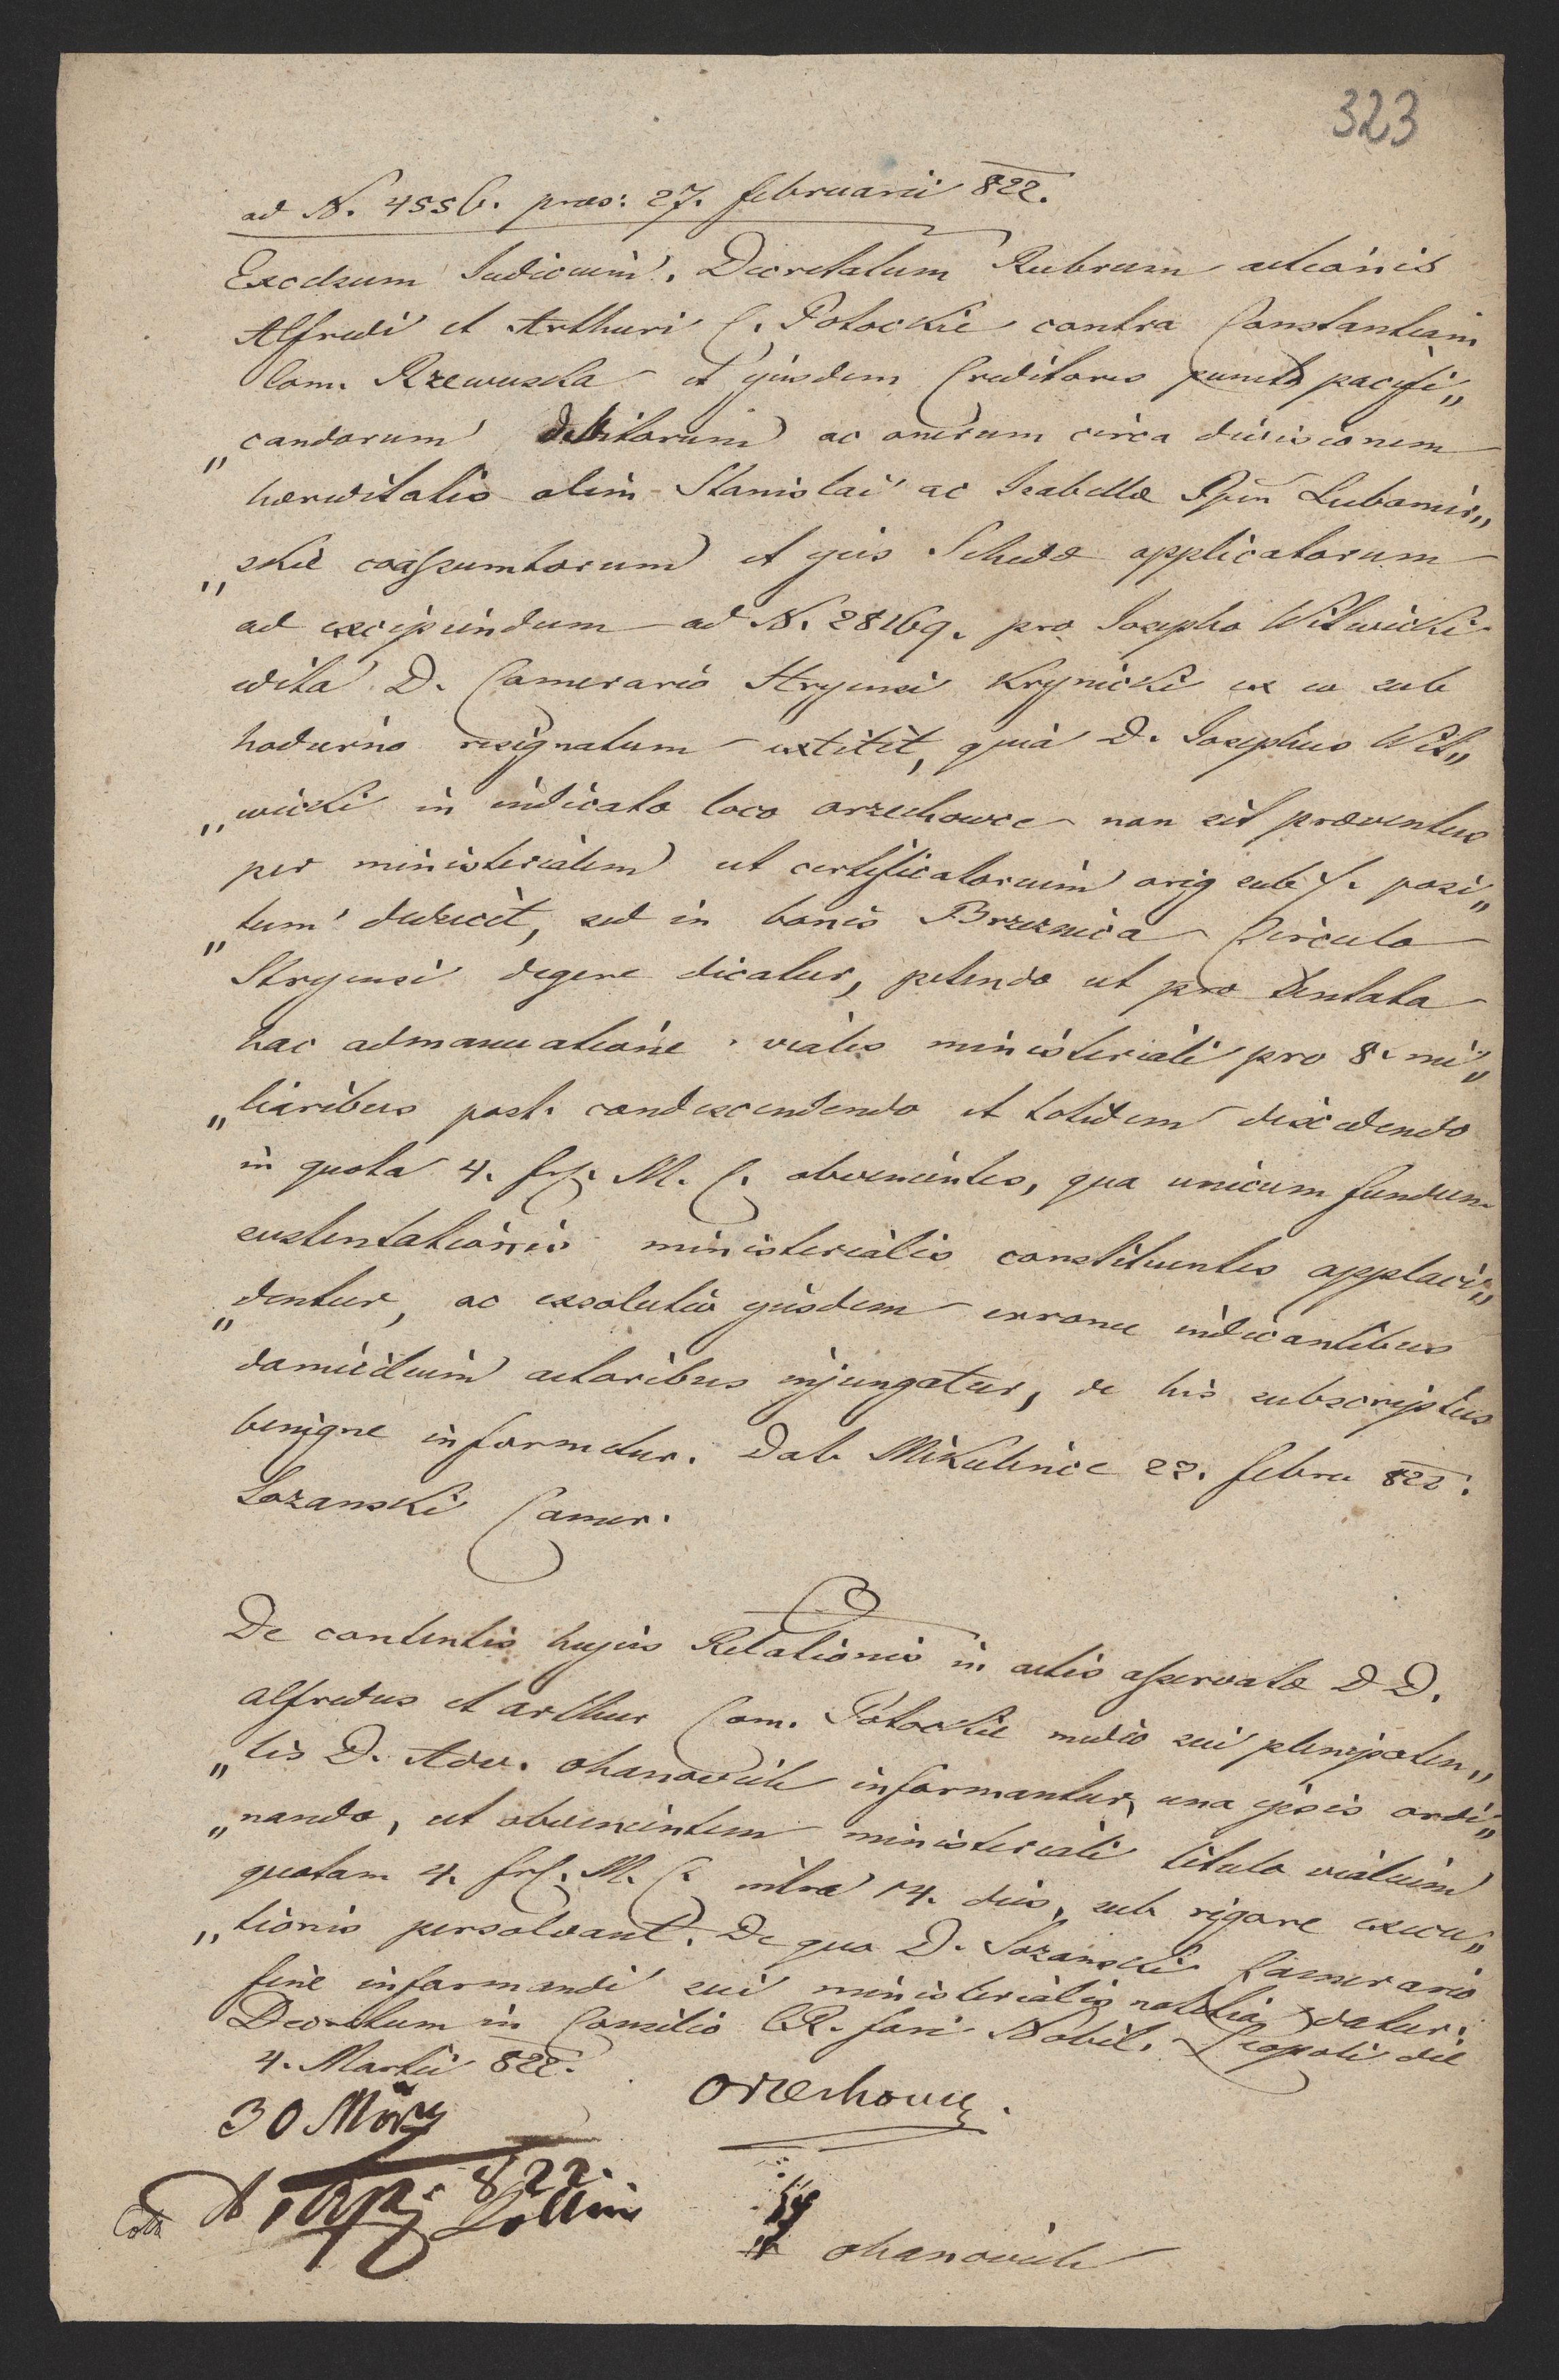 323
ad N. 4556. praes: 27. februarii 822.
Excelsum Judicium! Decretatum Rubrum actionis
Alfredi et Arthuri C. Potockie contra Constantiam
Com. Rzewuska et ejusdem Creditores puncto pacifi„
„candorum debitorum ac onerum circa divisionem
haereditatis olim Stanislai ac Isabellae Lubomir„
„skie coassumtorum et ejus Schedae applicatorum
ad excipiendum ad N. 28169. pro Josepho Witwicki
edita D. Camerario Stryensi Krynicki ex eo sub
hodierno resignatum extitit, quia D. Josephus Wit„
„wicki in indicato loco orzechowce non sit praeventus
per ministerialem ut certificatorium orig sub ./. posi„
„tum deducit, sed in bonis Brzeznica Circulo
Stryensi degere dicatur, petendo ut pro tentata
hac admanuatione viales ministeriali pro 8. mi„
„liaribus post. condescendendo et totidem discedendo
in quota 4. fr. M. C. obvenientes, qua unicum fundum
sustentationis ministerialis constituentes applaci„
„dentur, ac exsolutio ejusdem erronee indicantibus
domicilium actoribus injungatur, de his subscriptus
benigne informetur. Dab Mikulince 22. febru 822.
Lozanski Camer.
De contentis hujus Relationis in actis asservatae D D.
Alfredus et arthur Com. Potockie medio sui plenipoten„
„tis D. Adv. ohanowich informantur, una ipsis ordi„
„nando, ut obvenientem ministeriali titulo vialium
quotam 4. fr. M. C. intra 14. dies, sub rigore execu„
„tionis persolvant. De quo D. Lozanski Camerario
fine informandi sui ministerialis notitia datur.
Decretum in Consilio CR. fori Nobil. Leopoli die
4. Martii 822.
orzechowce.
30 März
822.
ohanowich